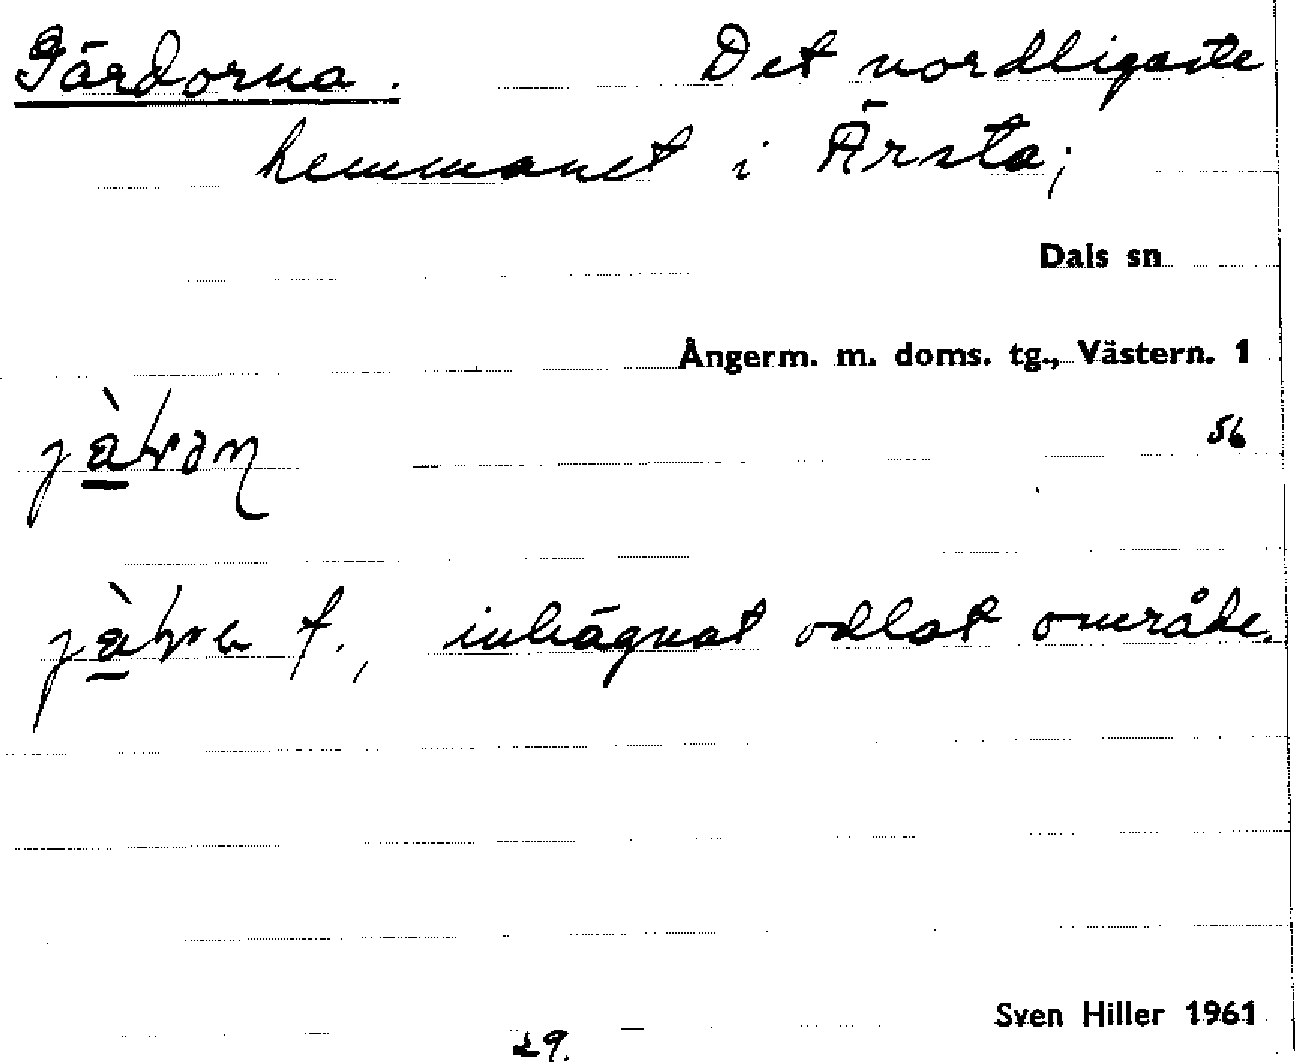 Gärdorna. Det nordligaste
hemmanet i Ärsta;
Dals sn
Ångerm. m. doms. tg., Västern. 1
56
f., inhägnat odlat område.
Sven Hiller 1961
29.